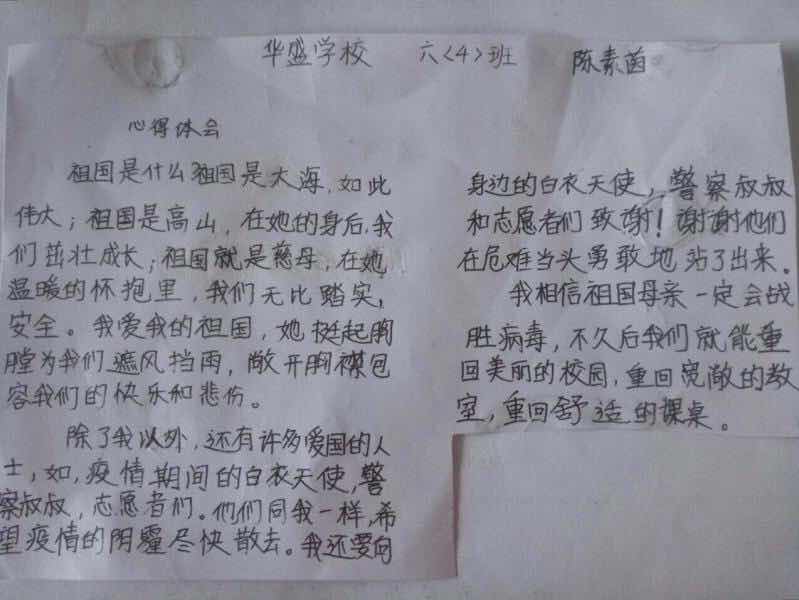 华盛学校 六〈4〉班 陈素茵
心得体会
祖国是什么祖国是大海，如此
伟大；祖国是高山，在她的身后，我
们茁壮成长；祖国就是慈母，在她
温暖的怀抱里，我们无比踏实，
安全。我爱我的祖国，她挺起胸
膛为我们遮风挡雨，敞开胸襟包
容我们的快乐和悲伤。
除了我以外，还有许多爱国的人
士，如，疫情期间的白衣天使，警
察叔叔，志愿者们。他们同我一样，希
望疫情的阴霾尽快散去。我还要向
身边的白衣天使，警察叔叔
和志愿者们致谢！谢谢他们
在危难当头勇敢地站了出来。
我相信祖国母亲一定会战
胜病毒，不久后我们就能重
回美丽的校园，重回宽敞的教
室，重回舒适的课桌。